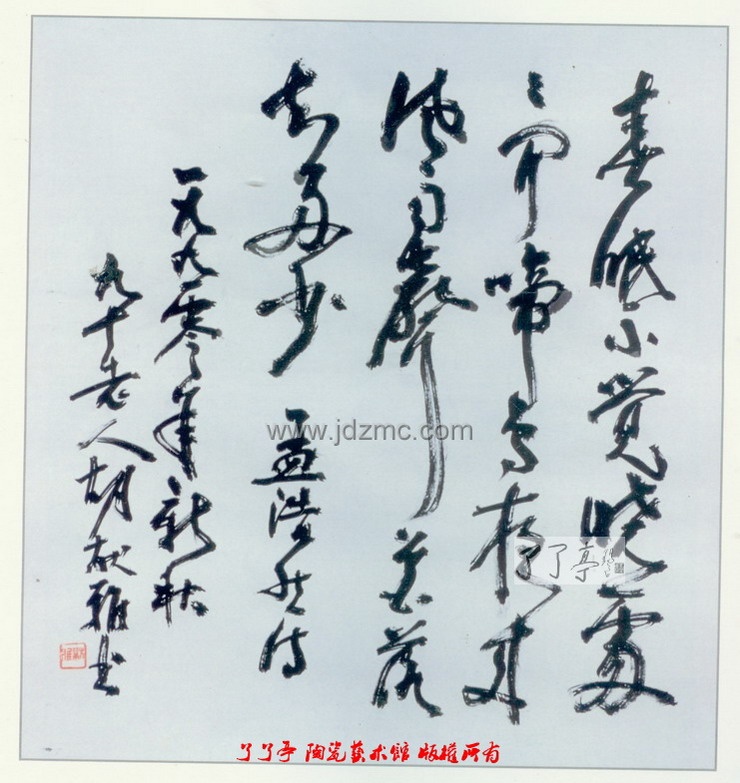 春眠不觉晓處
々闻啼鸟夜来
风雨聲花落
知多少 孟浩然诗
一九九零年新秋
九十老人胡献雅书
www.jdzmc.com
了了亭
了了亭 陶瓷藝术馆 版權所有